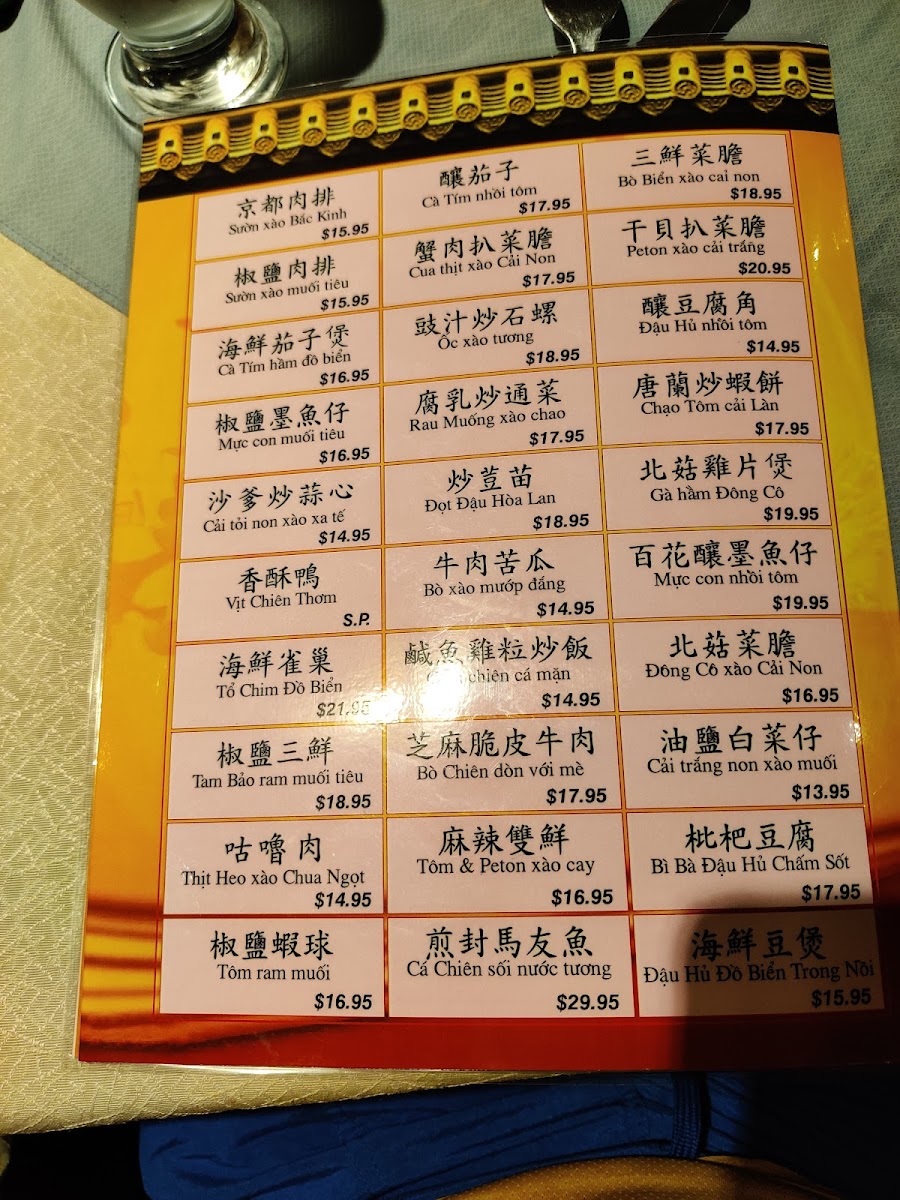 京都肉排
Sườn xào Bắc Kinh
$15.95
椒鹽肉排
Sườn xào muối tiêu
$15.95
海鮮茄子煲
Cà Tím hầm đồ biển
$16.95
椒鹽墨魚仔
Mực con muối tiêu
$16.95
沙爹炒蒜心
Cải tỏi non xào xa tế
$14.95
香酥鴨
Vịt Chiên Thơm
S.P.
海鮮雀巢
Tổ Chim Đồ Biển
$21.95
椒鹽三鮮
Tam Bảo ram muối tiêu
$18.95
咕嚕肉
Thịt Heo xào Chua Ngọt
$14.95
椒鹽蝦球
Tôm ram muối
$16.95
釀茄子
Cà Tím nhồi tôm
$17.95
蟹肉扒菜膽
Cua thịt xào Cải Non
$17.95
豉汁炒石螺
Ốc xào tương
$18.95
腐乳炒通菜
Rau Muống xào chao
$17.95
炒荳苗
Đọt Đậu Hòa Lan
$18.95
牛肉苦瓜
Bò xào mướp đắng
$14.95
鹹魚雞粒炒飯
chiên cá mặn
$14.95
芝麻脆皮牛肉
Bò Chiên dòn với mè
$17.95
麻辣雙鮮
Tôm & Peton xào cay
$16.95
煎封馬友魚
Cá Chiên sối nước tương
$29.95
三鮮菜膽
Bò Biển xào cải non
$18.95
干貝扒菜膽
Peton xào cải trắng
$20.95
釀豆腐角
Đậu Hủ nhồi tôm
$14.95
唐蘭炒蝦餅
Chạo Tôm cải Làn
$17.95
北菇雞片煲
Gà hầm Đông Cô
$19.95
百花釀墨魚仔
Mực con nhồi tôm
$19.95
北菇菜膽
Đông Cô xào Cải Non
$16.95
油鹽白菜仔
Cải trắng non xào muối
$13.95
枇杷豆腐
Bì Bà Đậu Hủ Chấm Sốt
$17.95
海鮮豆煲
Đậu Hủ Đồ Biển Trong Nồi
$15.95